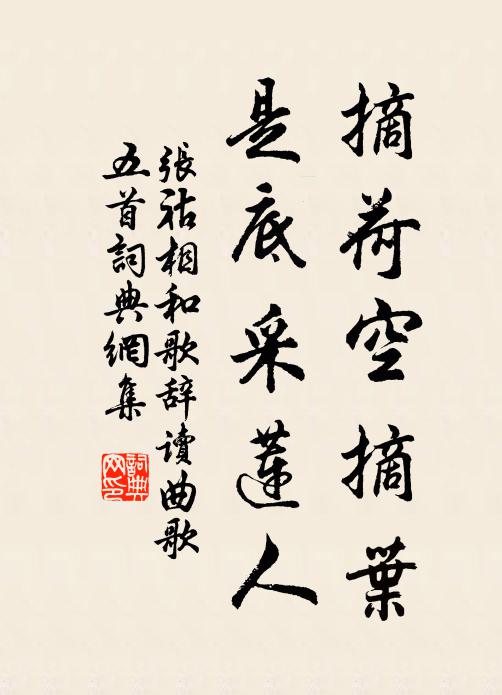 摘荷空摘葉
是底采蓮人
張祜相和歌辞讀曲歌
五首詞典網集
詞典网印